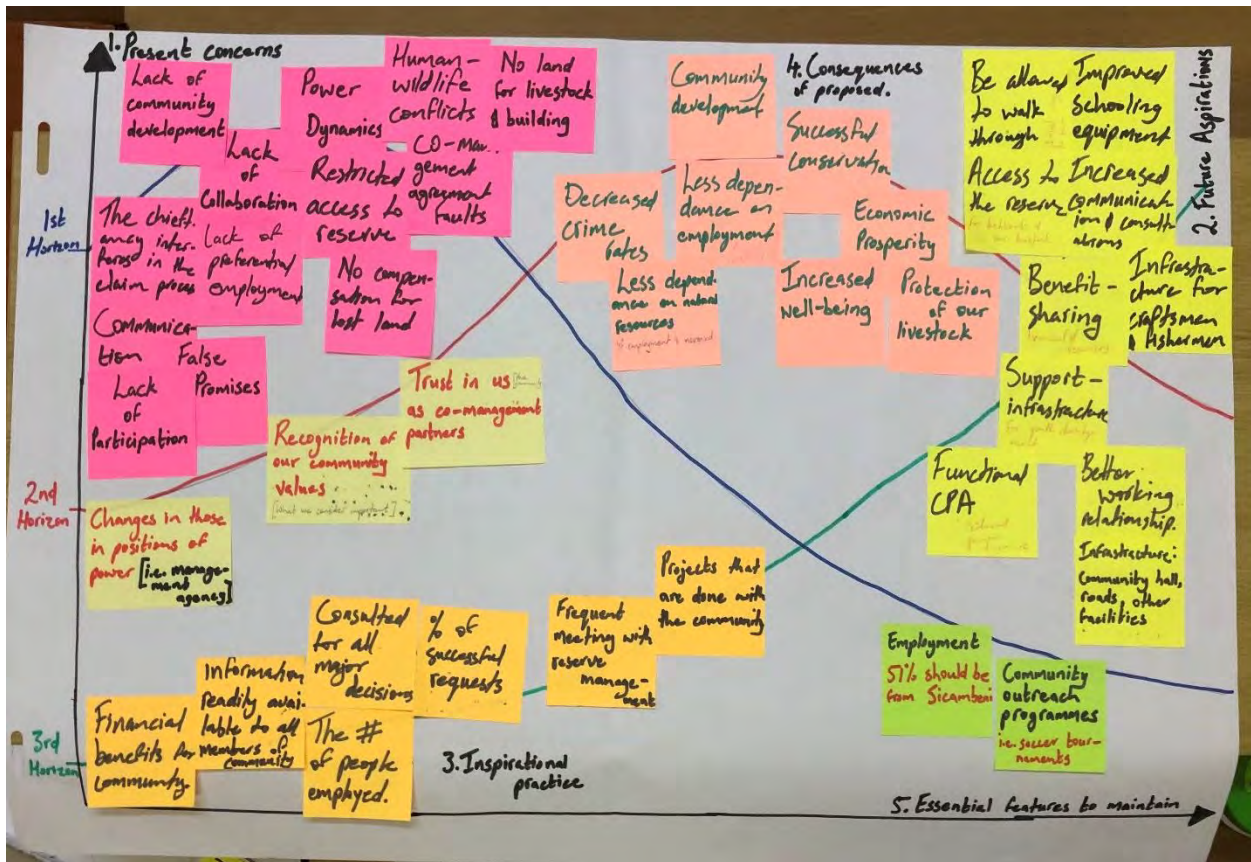 1. Present concerns
Lack of
community
development
Power
Dynamics
Human-
wildlife
conflicts
No land
for livestock
& building
Lack
of
Collaboration
Restricted
access to
reserve
CO-man
gement
agreement
faults
The chieft
ancy inter-
feres
in the
claim process
lack of
preferential
employment
No compen-
sation for
lost land
Communica-
tion
False
Promises
Lack
of
Participation
1st
Horizon
2nd
Horizon
3rd
Horizon
Trust in us
as co-management
partners
Recognition of
our community
values
[What we consider important]
Changes in those
in positions of
power [i.e. manage-
ment
agency]
4. Consequences
of proposed.
Community
development
Successful
Conservation
Decreased
crime
rates
Less depen-
dance on
employment
Economic
Prosperity
Less depend-
ance on natural
resources
Increased
well-being
Protection
of our
livestock
2. Future Aspirations
Be allowed
to walk
through
Improved
schooling
equipment
Access to
the reserve
Increased
communicat-
ion & consult-
ations
Benefit-
sharing
Infrastru-
cture for
craftsmen
& fishermen
Support-
infrastructure
Functional
CPA
Better
working
relationship.
Infrastructure:
community hall,
roads, other
facilities
Financial
benefits for
community.
Information
readily avai-
lable to all
members of
community
Consulted
for all
major
decisions
The #
of people
employed.
% of
successful
requests
Frequent
meeting with
reserve
manage-
ment
Projects that
are done with
the community
3. Inspirational
practice
Employment
51% should be
from Sicambeni
Community
outreach
programmes
i.e. soccer tour-
naments
5. Essential features to maintain